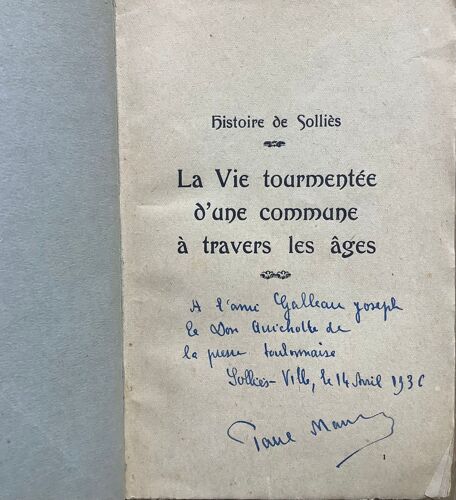 Histoire de Solliès
La Vie tourmentée
d'une commune
à travers les âges
A l'ami Galleau Joseph
le Don Quichotte de
la presse toulonnaise
Solliès-Ville, le 14 Avril 1936
Paul Maur
1